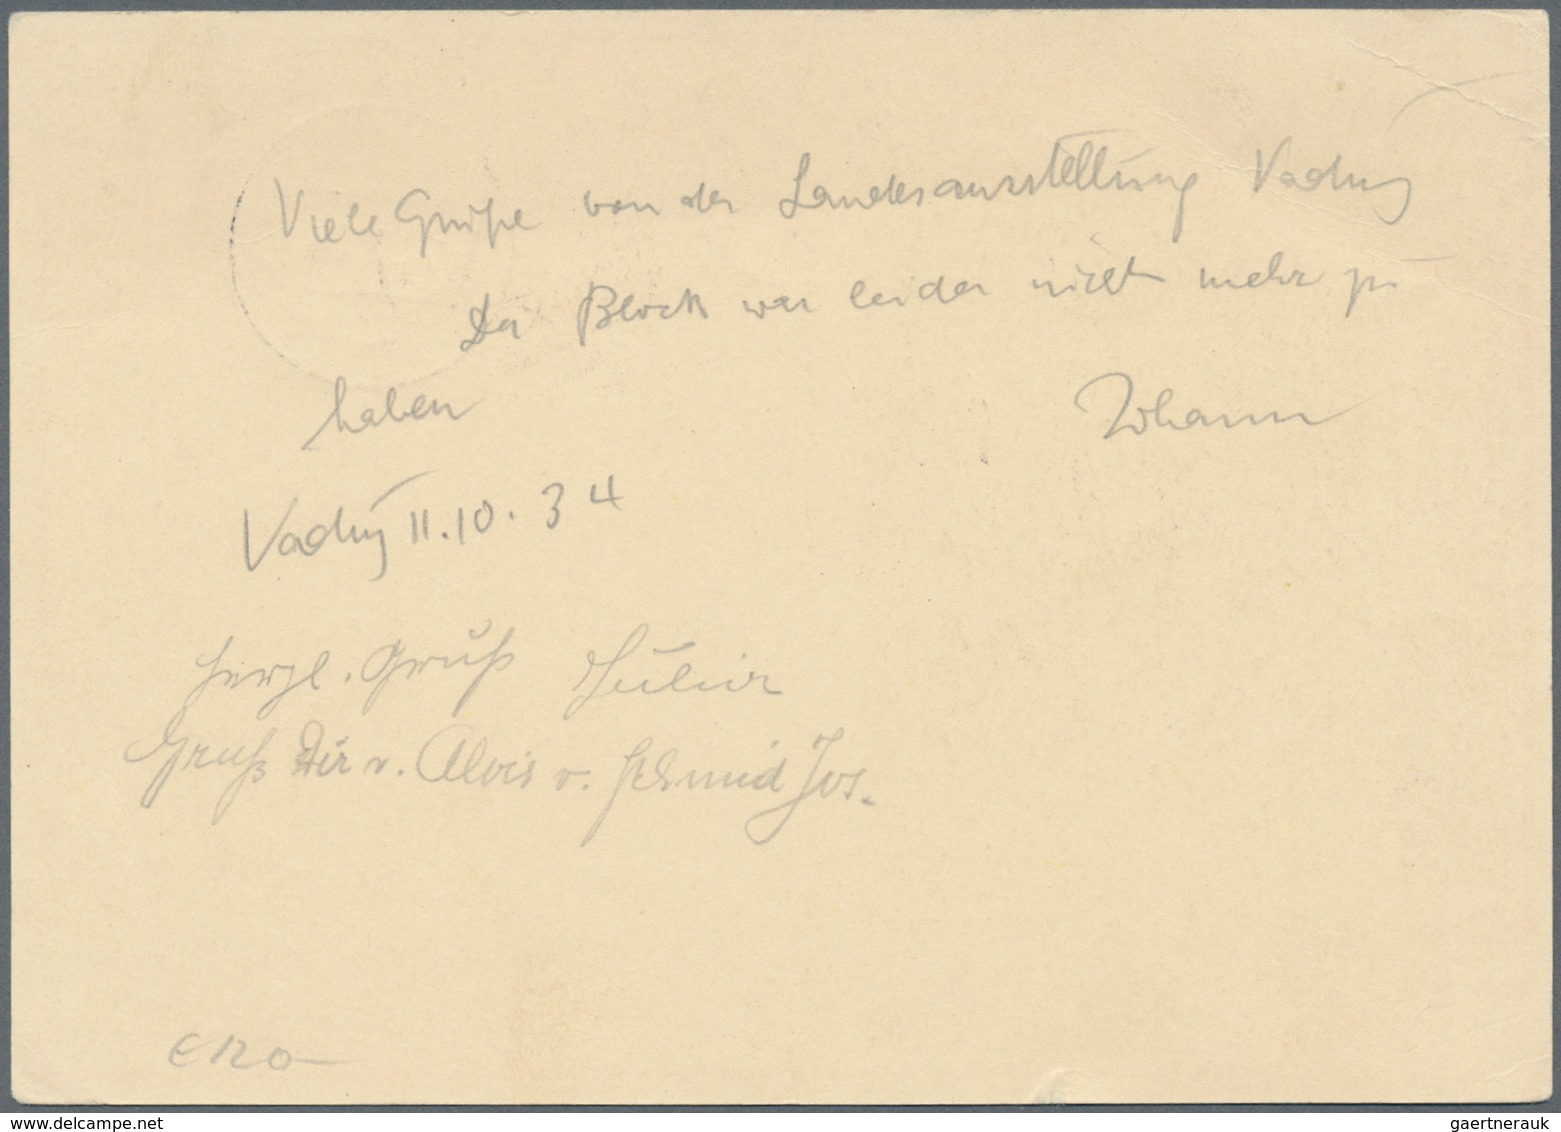 Viele Grüße von der Landesausstellung Vaduz
Der Block war leider nicht mehr zu
haben Johann
Vaduz 11.10.34
Herzl. Gruß
Gruß Dir v. Alois v. Schmid Jos.
€120-
www.delcampe.net
gaertnerauk